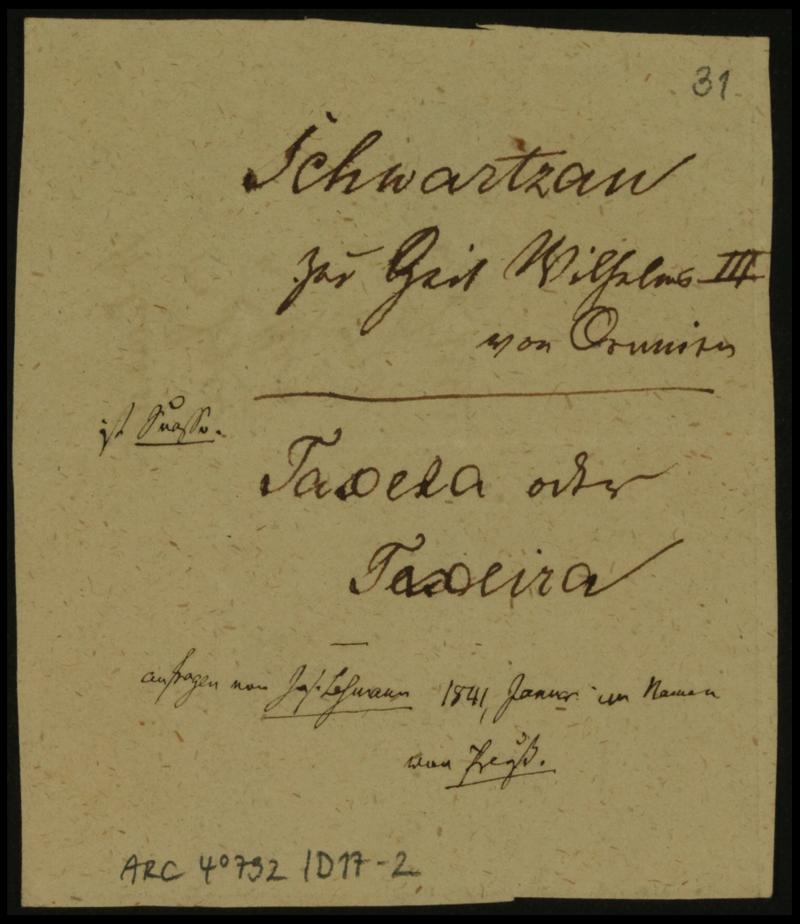 31
Schwartzau
zur Zeit Wilhelms III
von Oranien
ist Suasso.
Taxera oder
Taxeira
anfragen von Jos. Lehmann 1841, Januar im Namen
von Preuß.
ARC 4° 792 / D17-2